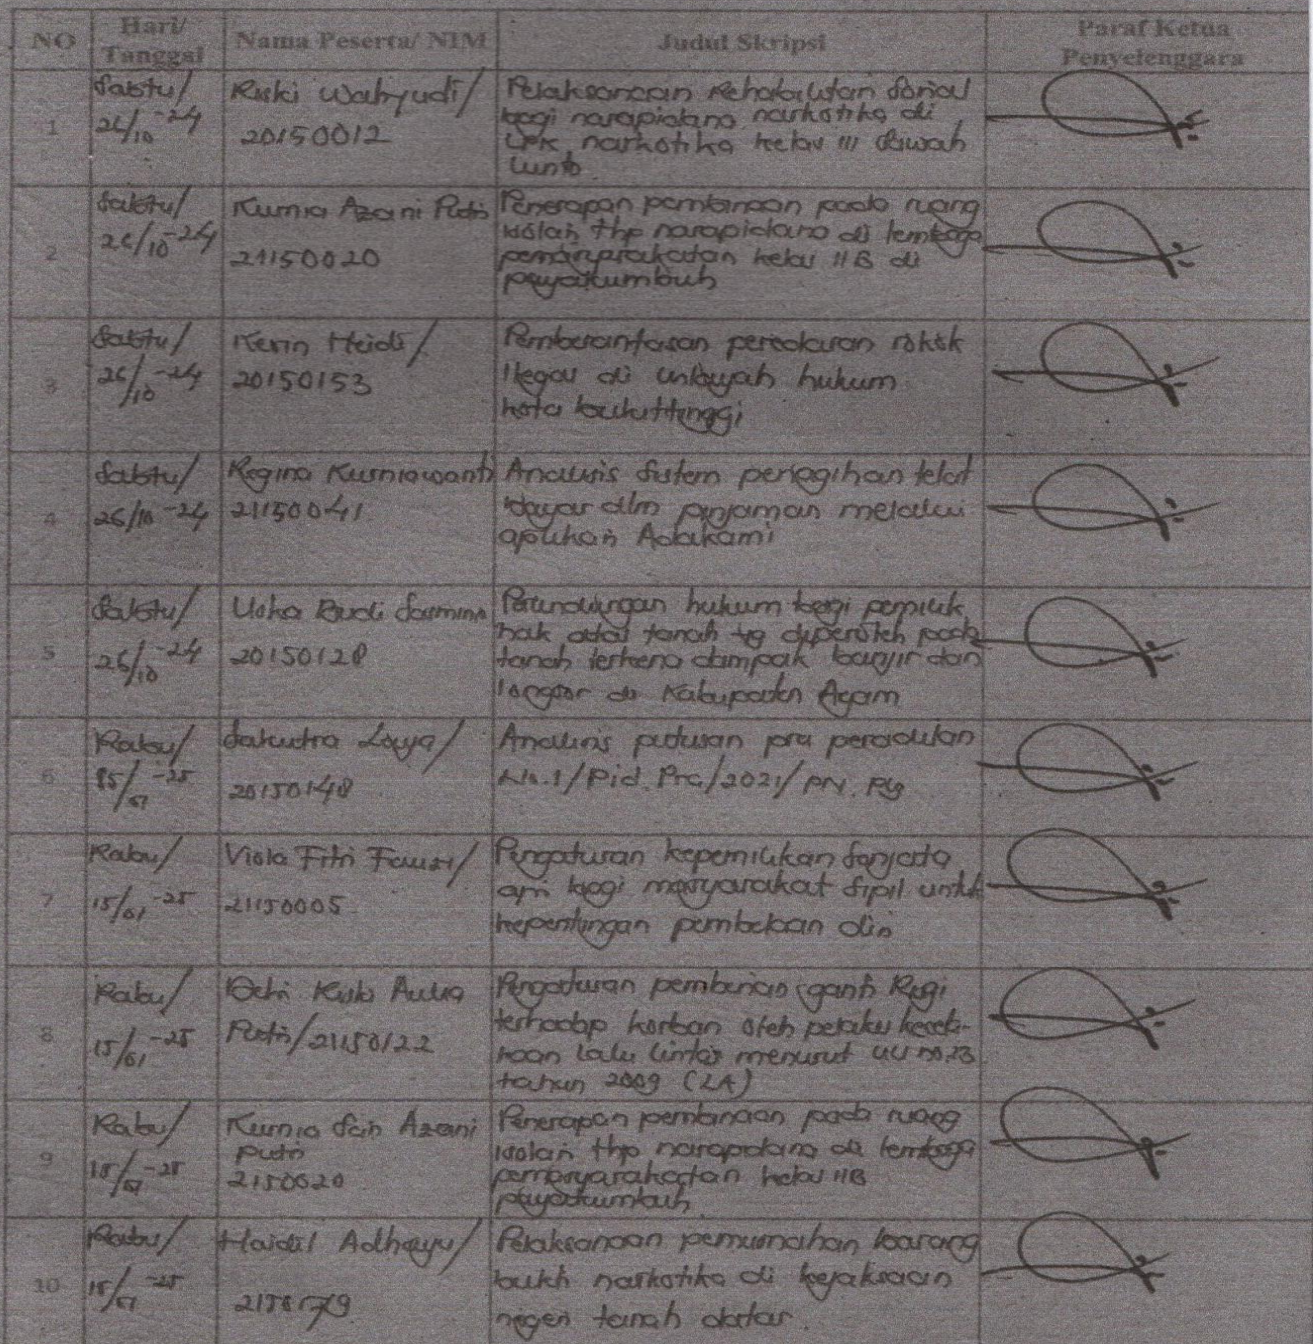 NO
Hari/
Tanggal
Nama Peserta/ NIM
Judul Skripsi
Paraf Ketua
Penyelenggara
1
Sabtu/
26/10-24
Riski Wahyudi/
20150012
Pelaksanaan Rehabilitasi Sosial
bagi narapidana narkotika di
narkotika kelas III Sawah
Lunto
2
Sabtu/
26/10-24
Kurnia Azani Putri
21150020
Penerapan pembinaan pada ruang
isolasi thp narapidana di lembaga
pemasyarakatan kelas IIB di
payakumbuh
3
Sabtu/
26/10-24
Kevin Heidi/
20150153
Pemberantasan peredaran rokok
Ilegal di wilayah hukum
kota bukittinggi
4
Sabtu/
26/10-24
Regina Kurniawanti
21150041
Analisis Sistem penagihan telat
bayar dlm pinjaman melalui
aplikasi Adakami
5
Sabtu/
26/10-24
Budi
20150128
Perlindungan hukum bagi pemilik
hak atas tanah yg diperoleh pada
tanah terkena dampak banjir dan
longsor di Kabupaten Agam
6
Rabu/
/01-25
20150148
Analisis putusan pra peradilan
No.1/Pid.Pra/2021/PN.
7
Rabu/
15/01-25
Viola Fitri Fauzi/
21150005
Pengaturan kepemilikan Senjata
api bagi masyarakat Sipil untuk
kepentingan pembelaan diri
8
Rabu/
15/01-25
Aulia
Putri/21150122
Pengaturan pemberian ganti Rugi
terhadap korban oleh pelaku kecela-
kaan lalu lintas menurut UU no.
tahun 2009 (LA)
9
Rabu/
15/01-25
Kurnia Azani
putri
2150020
Penerapan pembinaan pada ruang
isolasi thp narapidana di lembaga
pemasyarakatan kelas IIB
payakumbuh
10
Rabu/
15/01-25
Haidil
Pelaksanaan pemusnahan barang
bukti narkotika di kejaksaan
negeri tanah datar.